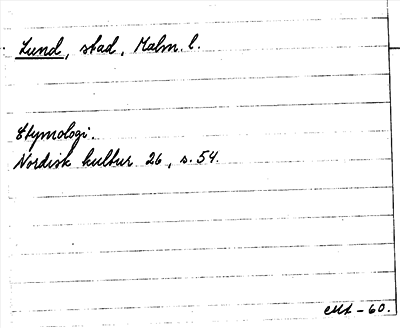 Lund, stad, Malm. l.
Etymologi.
Nordisk kultur 26, s. 54.
-60.